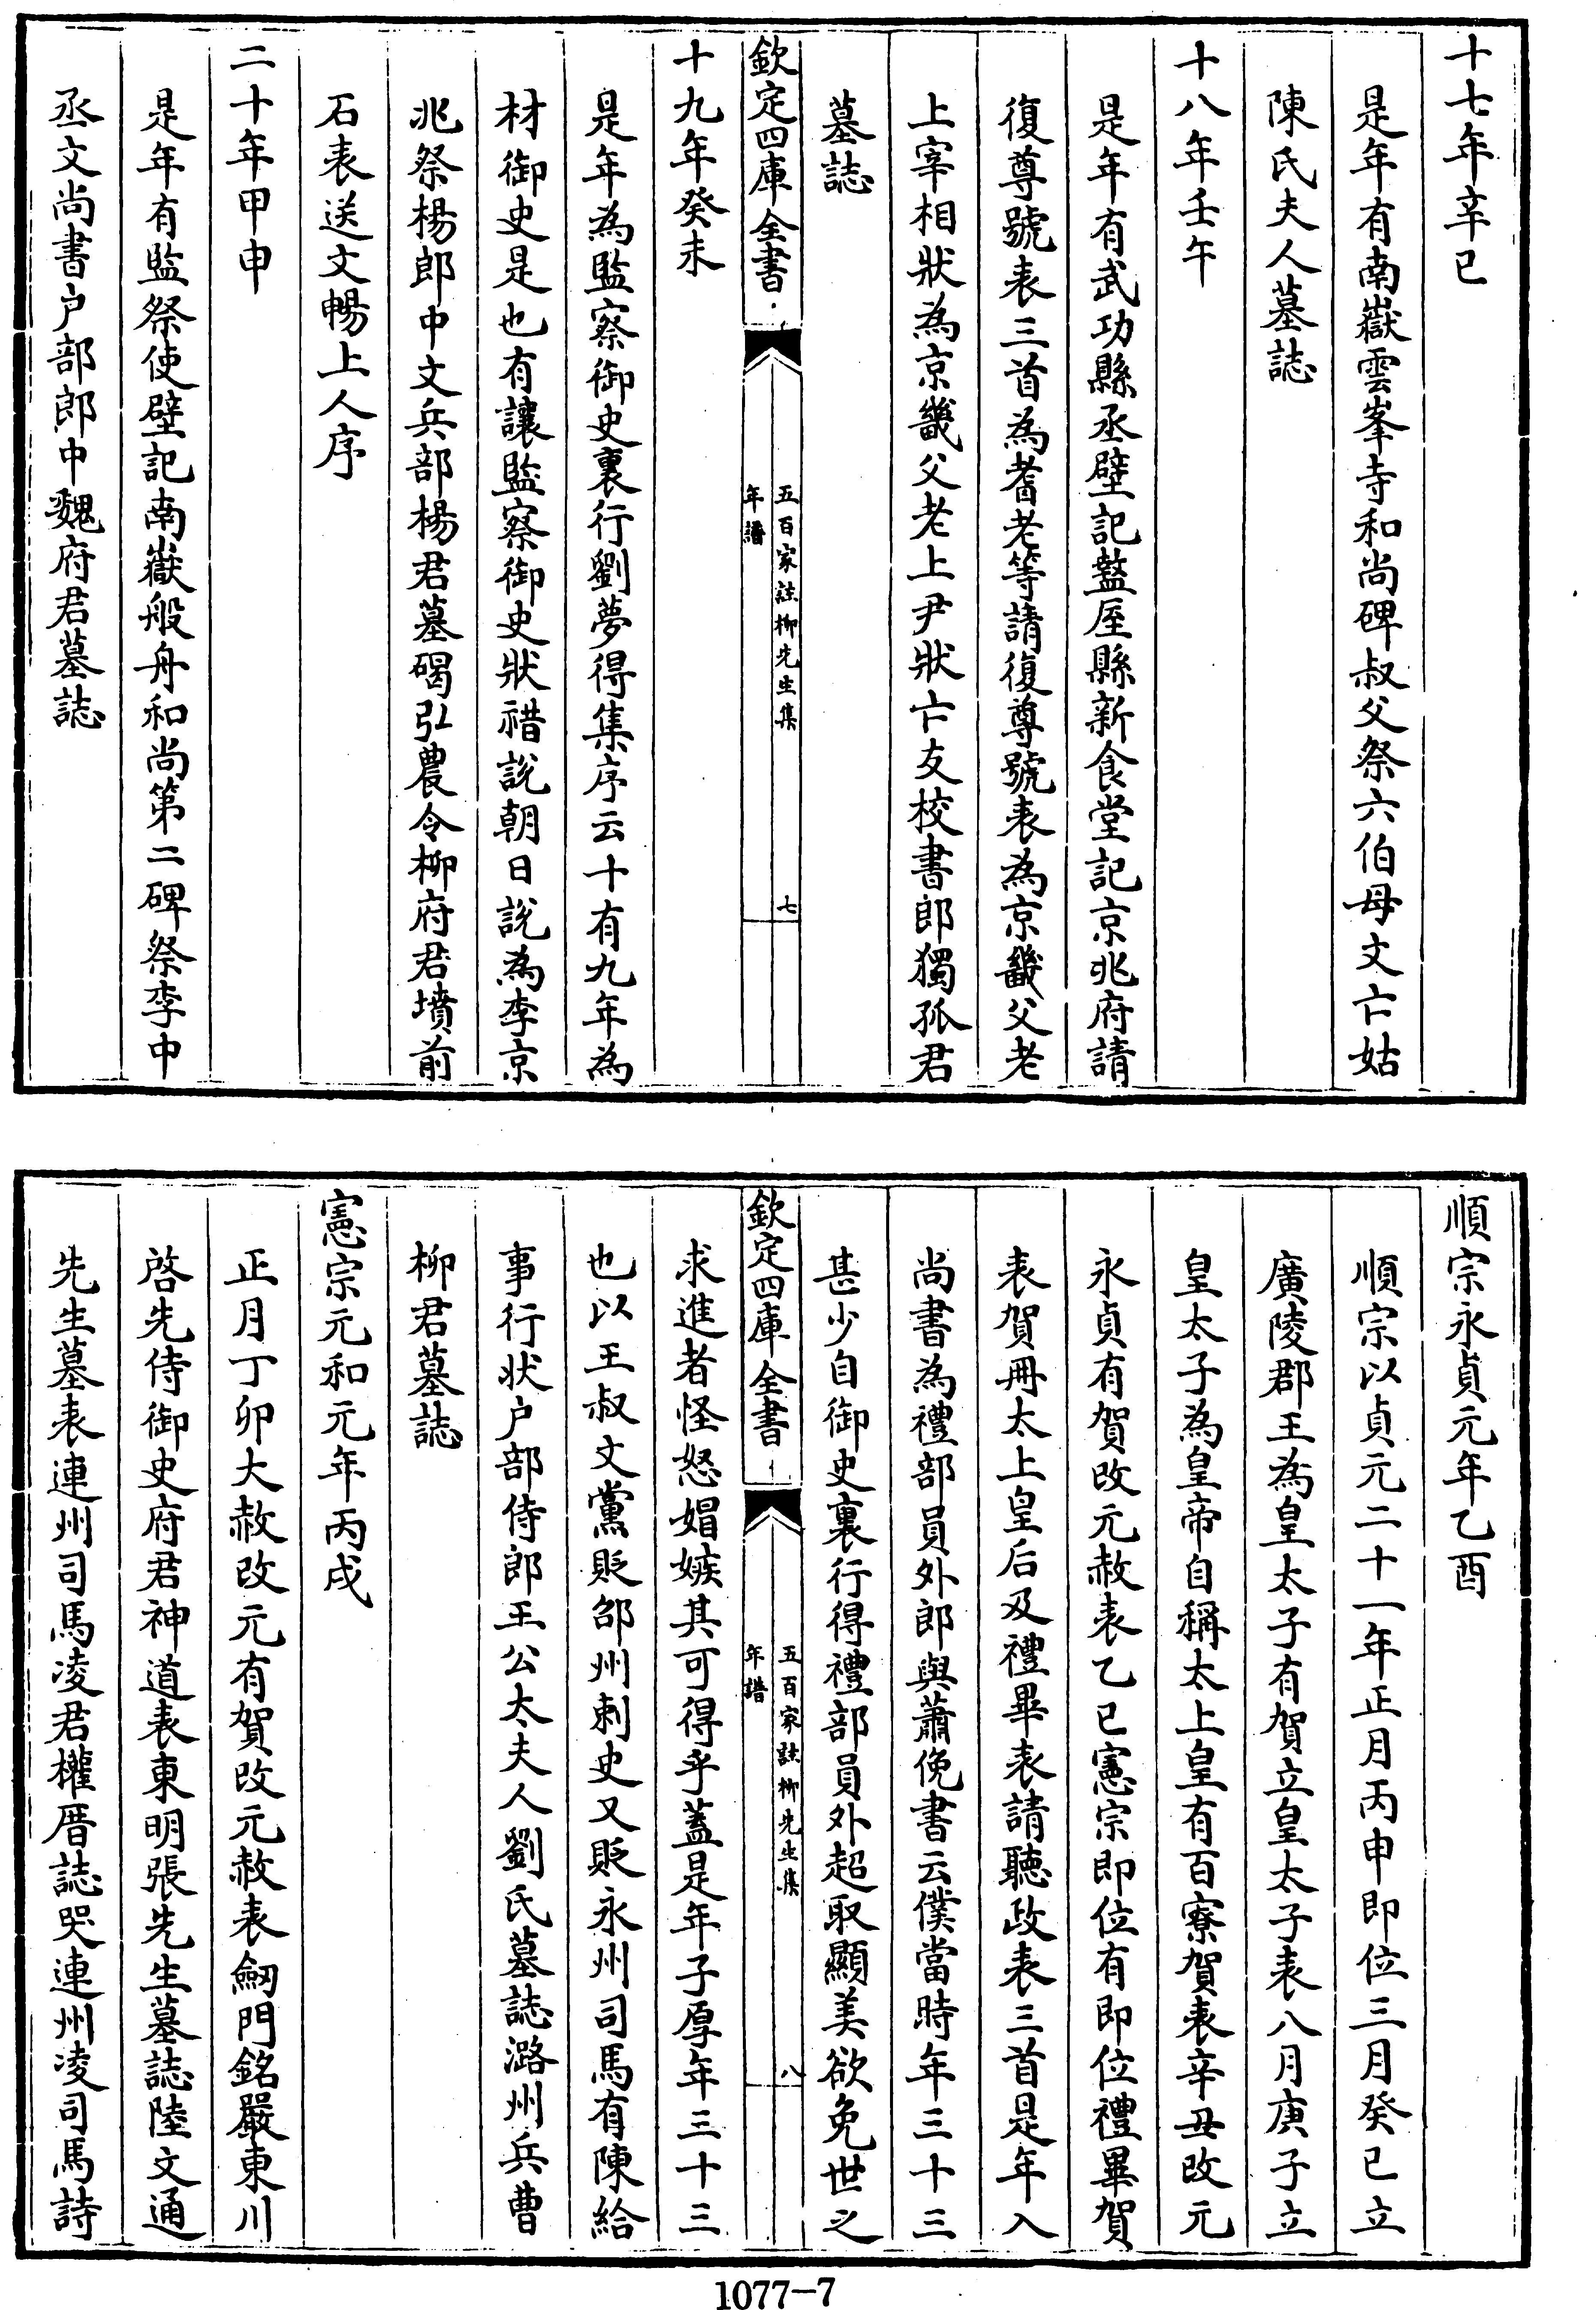 十七年辛巳
是年有南嶽雲峯寺和尚碑叔父祭六伯母文亡姑
陳氏夫人墓誌
十八年壬午
是年有武功縣丞壁記盩厔縣新食堂記京兆府請
復尊號表三首為耆老等請復尊號表為京畿父老
上宰相狀為京畿父老上尹狀亡友校書郎獨孤君
墓誌
欽定四庫全書
五百家註柳先生集
年譜
七
十九年癸未
是年為監察御史裏行劉夢得集序云十有九年為
材御史是也有讓監察御史狀禇說朝日說為李京
兆祭楊郎中文兵部楊君墓碣弘農令柳府君墳前
石表送文暢上人序
二十年甲申
是年有監祭使壁記南嶽般舟和尚第二碑祭李中
丞文尚書户部郎中魏府君墓誌
順宗永貞元年乙酉
順宗以貞元二十一年正月丙申即位三月癸巳立
廣陵郡王為皇太子有賀立皇太子表八月庚子立
皇太子為皇帝自稱太上皇有百寮賀表辛丑改元
永貞有賀改元赦表乙巳憲宗即位有即位禮畢賀
表賀冊太上皇后及禮畢表請聽政表三首是年入
尚書為禮部員外郎與蕭俛書云僕當時年三十三
甚少自御史裏行得禮部員外超取顯美欲免世之
欽定四庫全書
五百家註柳先生集
年譜
八
求進者怪怒媢嫉其可得乎蓋是年子厚年三十三
也以王叔文黨貶邵州刺史又貶永州司馬有陳給
事行狀户部侍郎王公太夫人劉氏墓誌潞州兵曹
柳君墓誌
憲宗元和元年丙戌
正月丁卯大赦改元有賀改元赦表劒門銘嚴東川
啓先侍御史府君神道表東明張先生墓誌陸文通
先生墓表連州司馬凌君權厝誌哭連州凌司馬詩
1077-7